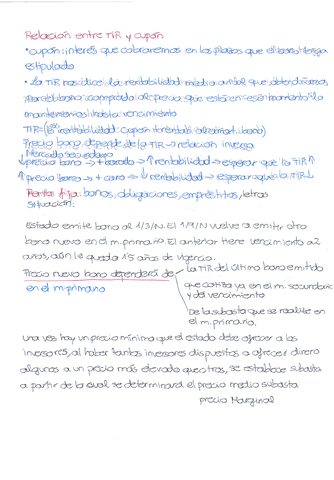 Relación entre TIR y cupón
• cupón: interés que cobraremos en los plazos que el bono tenga
estipulado
• La TIR nos dice: la rentabilidad media anual que obtendríamos
por el bono comprado al precio que esté en ese momento si lo
mantenemos hasta vencimiento
TIR = (rentabilidad: cupón + rentab. bono)
Precio bono depende de la TIR → relación inversa
Mercado secundario
↓ precio bono → + barato → ↑ rentabilidad → esperar que la TIR ↑
↑ precio bono → + caro → ↓ rentabilidad → esperar que la TIR ↓
Renta fija: bonos, obligaciones, empréstitos, letras
Situación:
Estado emite bono al 1/3/N. El 1/9/N vuelve a emitir otro
bono nuevo en el m. primario. El anterior tiene vencimiento a 2
años, aún le queda 1'5 años de vigencia.
Precio nuevo bono dependerá de
en el m. primario
la TIR del último bono emitido
que cotiza ya en el m. secundario
y del vencimiento
De la subasta que se realite en
el m. primario.
Una vez hay un precio mínimo que el estado debe ofrecer a los
inversores, al haber tantos inversores dispuestos a ofrecer dinero
algunos a un precio más elevado que otros, se establece subasta
a partir de la cual se determinará el precio medio subasta
precio Marginal